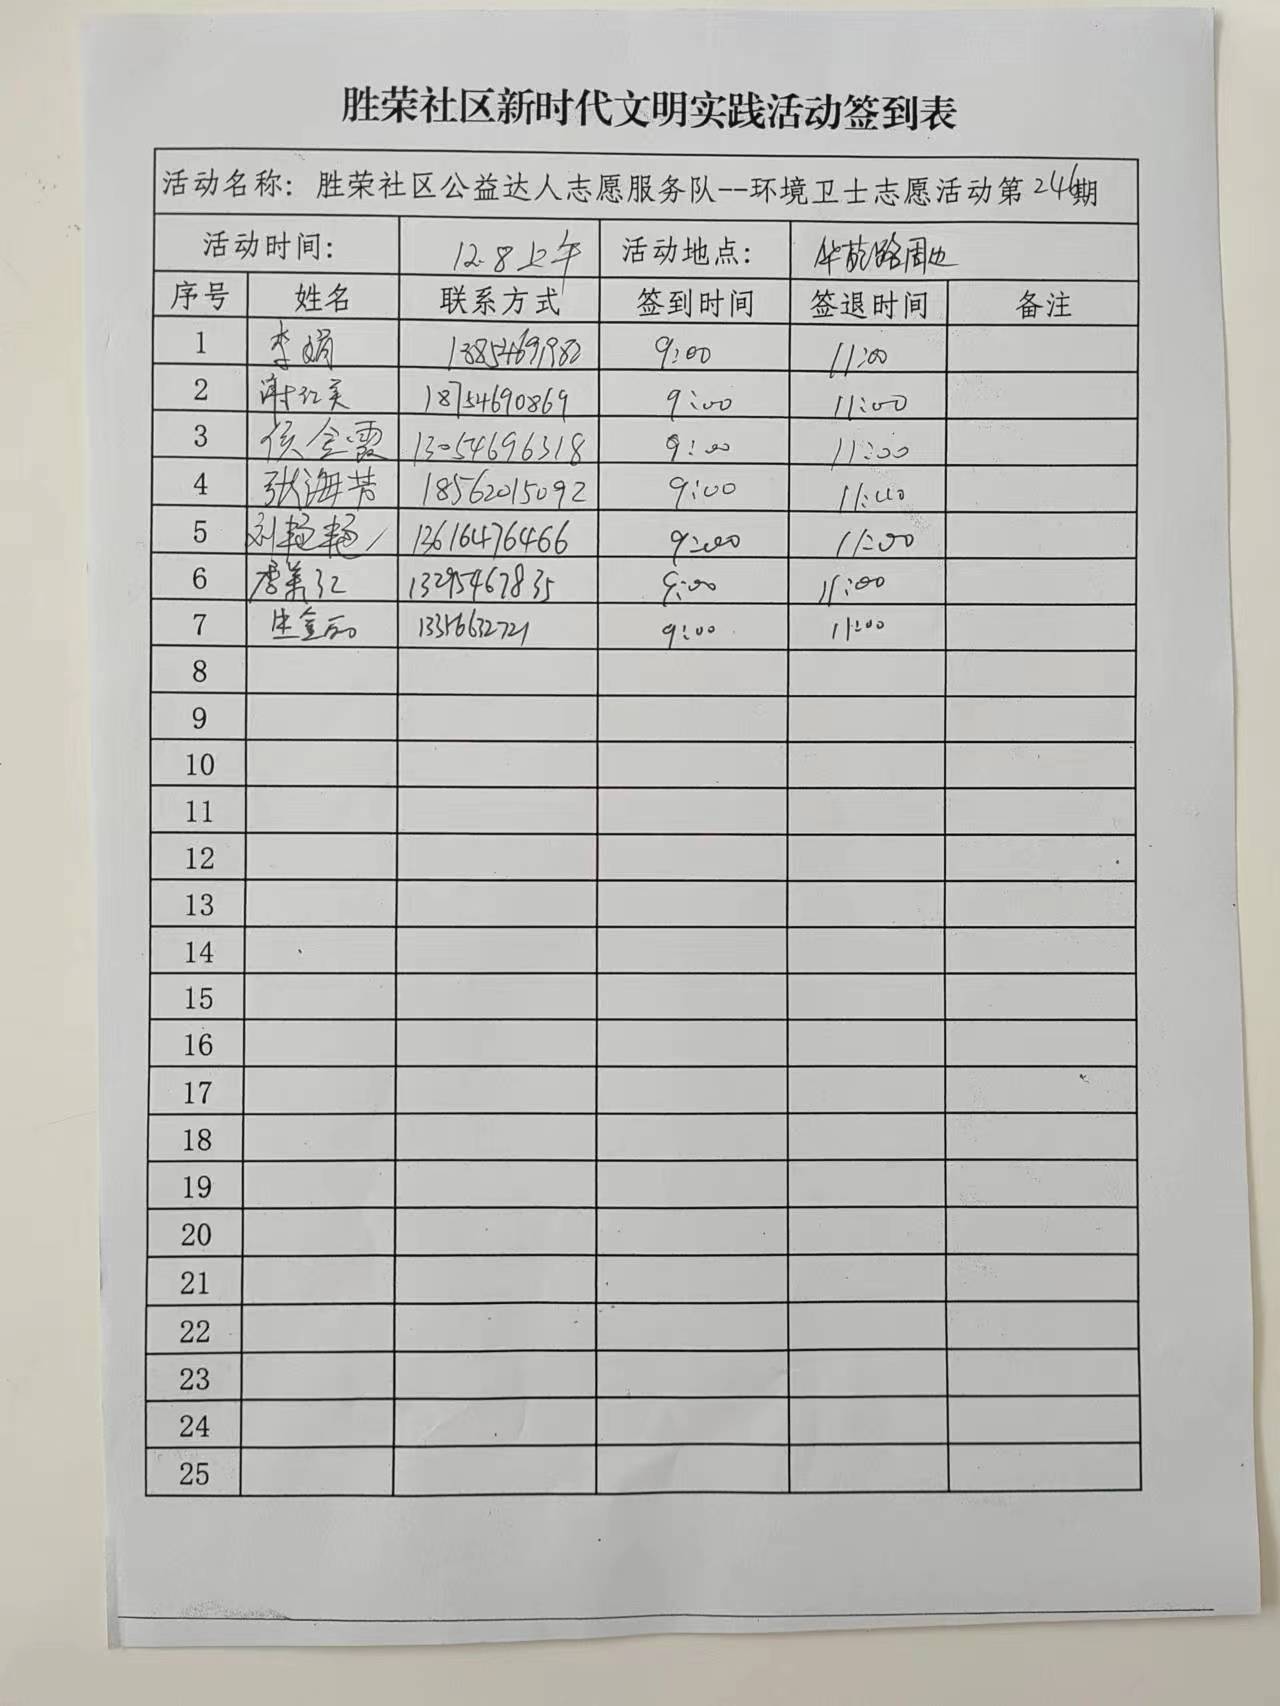 胜荣社区新时代文明实践活动签到表
活动名称：胜荣社区公益达人志愿服务队--环境卫士志愿活动第246期
活动时间： 12.8上午 活动地点： 路周边
序号 姓名 联系方式 签到时间 签退时间 备注
1 李娟 13854691982 9:00 11:00
2 谢红美 18754690869 9:00 11:00
3 侯全霞 13054696318 9:00 11:00
4 张海芳 18562015092 9:00 11:00
5 刘艳艳 13616476466 9:00 11:00
6 13295467835 9:00 11:00
7 13356632721 9:00 11:00
8
9
10
11
12
13
14
15
16
17
18
19
20
21
22
23
24
25